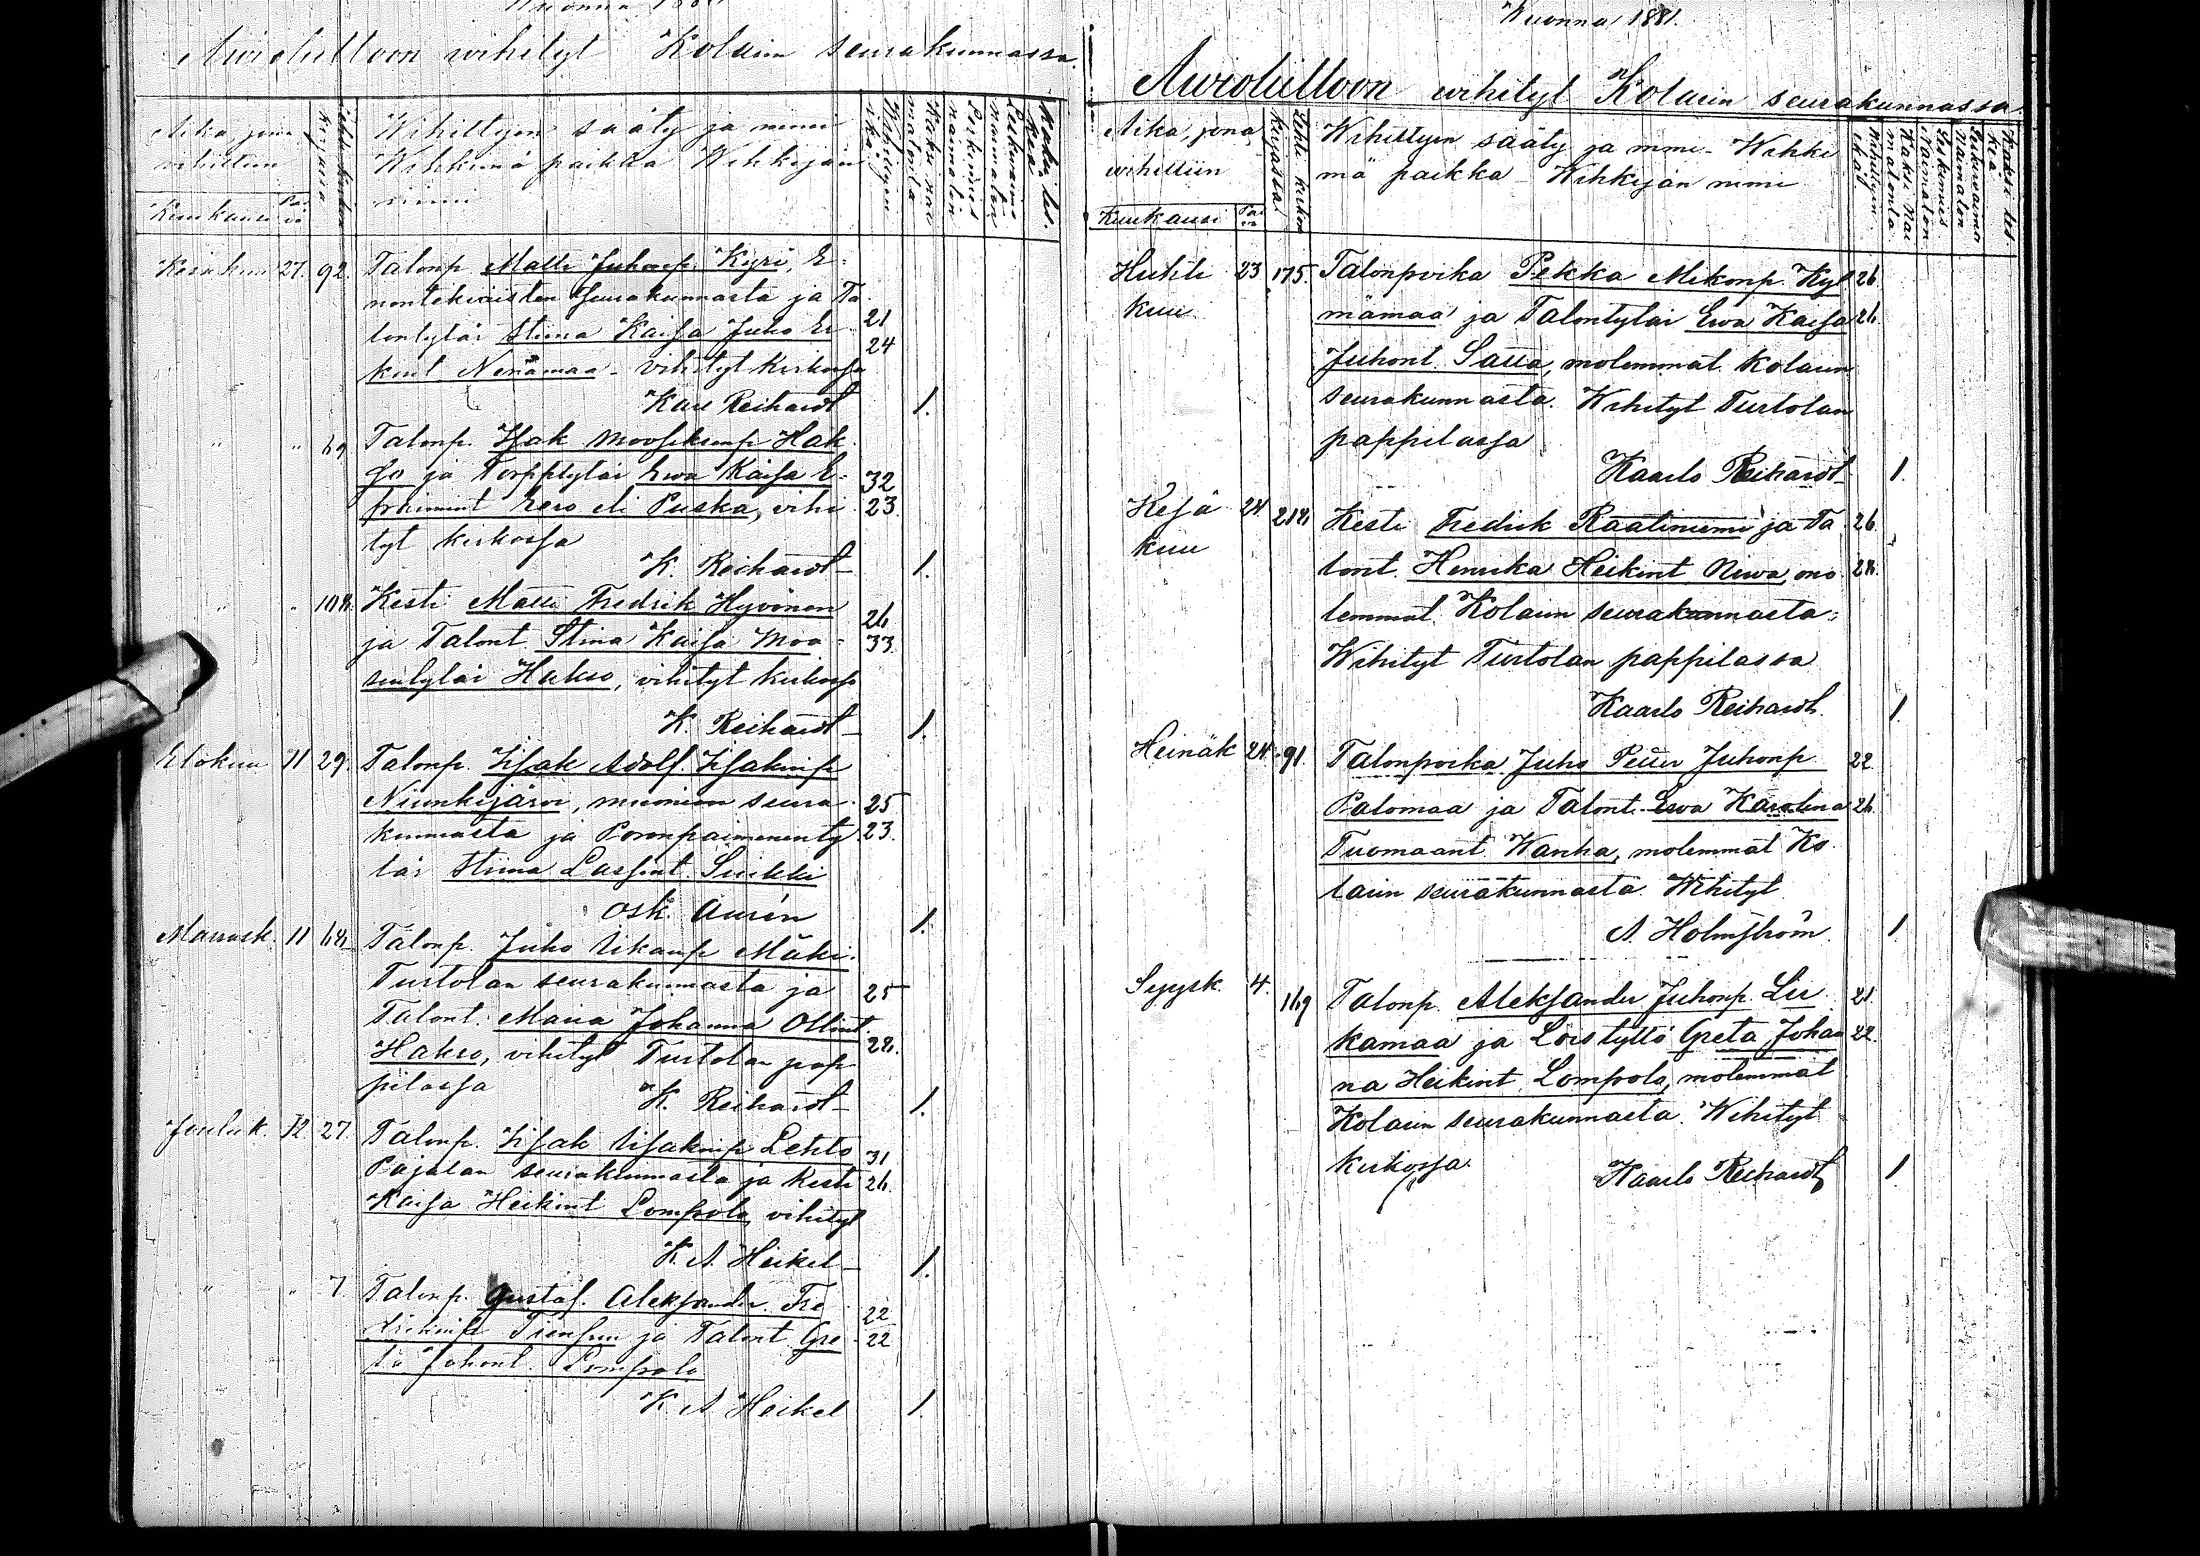 Aviolittoon wihityt Kolarin seurakunnassa.
Aika, jona
wihittiin
Wihittyen sääty ja nimi
Wihkimä paikka Wihkijän
nimi
Kuukausi
Kesäkuu 27. 92. Talonp. Matti Juhonp. Kyrö, E-
nontekiäisten seurakunnasta ja Ta-
lontytär Stiina Kaisa Juho Er- 21
24
kint. Nenämaa - vihityt kirkossa
Kaarl Reihardt 1.
" " 69 Talonp. Isak Mooseksenp. Hak-
so ja Torpptytär Ewa Kaisa E- 32
fraimint Eero eli Puska, vihi- 23.
tyt kirkossa
K. Reihardt 1.
" " Kesti Matti Fredrik Hyvönen 26
ja Talont. Stina Kaisa Moo- 33
sentytär Hakso, vihityt kirkossa
K. Reihardt 1.
Elokuu 11 29. Talonp. Iisak Adolf Iisakinp.
Niunkijärvi, Muonion seura- 25
kunnasta ja Poronpaimenenty- 23.
tär Stiina Lassint. Siikki
Osk. Aurén 1.
Marrask. 11 64. Talonp. Juho Iikanp Mäki.
Turtolan seurakunnasta ja 25
Talont. Maria Johanna Ollint.
Hakso, vihityt Turtolan pap- 24.
pilassa K. Reihardt 1.
Jouluk. 12 27. Talonp. Iisak Iisakinp Lehto 31
Pajalan seurakunnasta ja Kesti 26.
Kaisa Heikint Lompolo, vihityt
K. A. Heikel 1.
" " 7 Talonp. Gustaf Aleksander Fre- 22
drikinp Tiensuu ja Talont Gre- 22
ta Johont. Lompolo
K. A Heikel 1.
Wuonna 1881.
Awiolittoon wihityt Kolarin seurakunnassa.
Aika, jona
wihittiin
Lehti kirkon
kirjassa
Wihittyin sääty ja nimi - Wihki-
mä paikka - Wihkijän nimi
Wihittyin
ikä.
Kuukausi
Huhti- 23 175. Talonpoika Pekka Mikonp. Kyl- 26.
kuu mämaa ja Talontytär Ewa Kaisa 26.
Juhont. Satta, molemmat Kolarin
seurakunnasta. Wihityt Turtolan
pappilassa
Kaarlo Reihardt 1.
Kesä- 24. 214. Kesti Fredrik Raatiniemi ja Ta- 26.
kuu lont. Henrika Heikint Niwa, mo- 24.
lemmat Kolarin seurakunnasta.
Wihityt Turtolan pappilassa
Kaarlo Reihardt. 1
Heinäk 24. 91. Talonpoika Juho Petter Juhonp 22
Palomaa ja Talont. Ewa Karolina 26.
Tuomaant. Wanha, molemmat Ko-
larin seurakunnasta. Wihityt
A. Holmström. 1
Syysk. 4. 169 Talonp. Aleksander Juhonp. Lii- 21.
kamaa ja Loistyttö Greta Johan- 22.
na Heikint. Lompolo, molemmat
Kolarin seurakunnasta. Wihityt
kirkossa. Kaarlo Reihardt 1